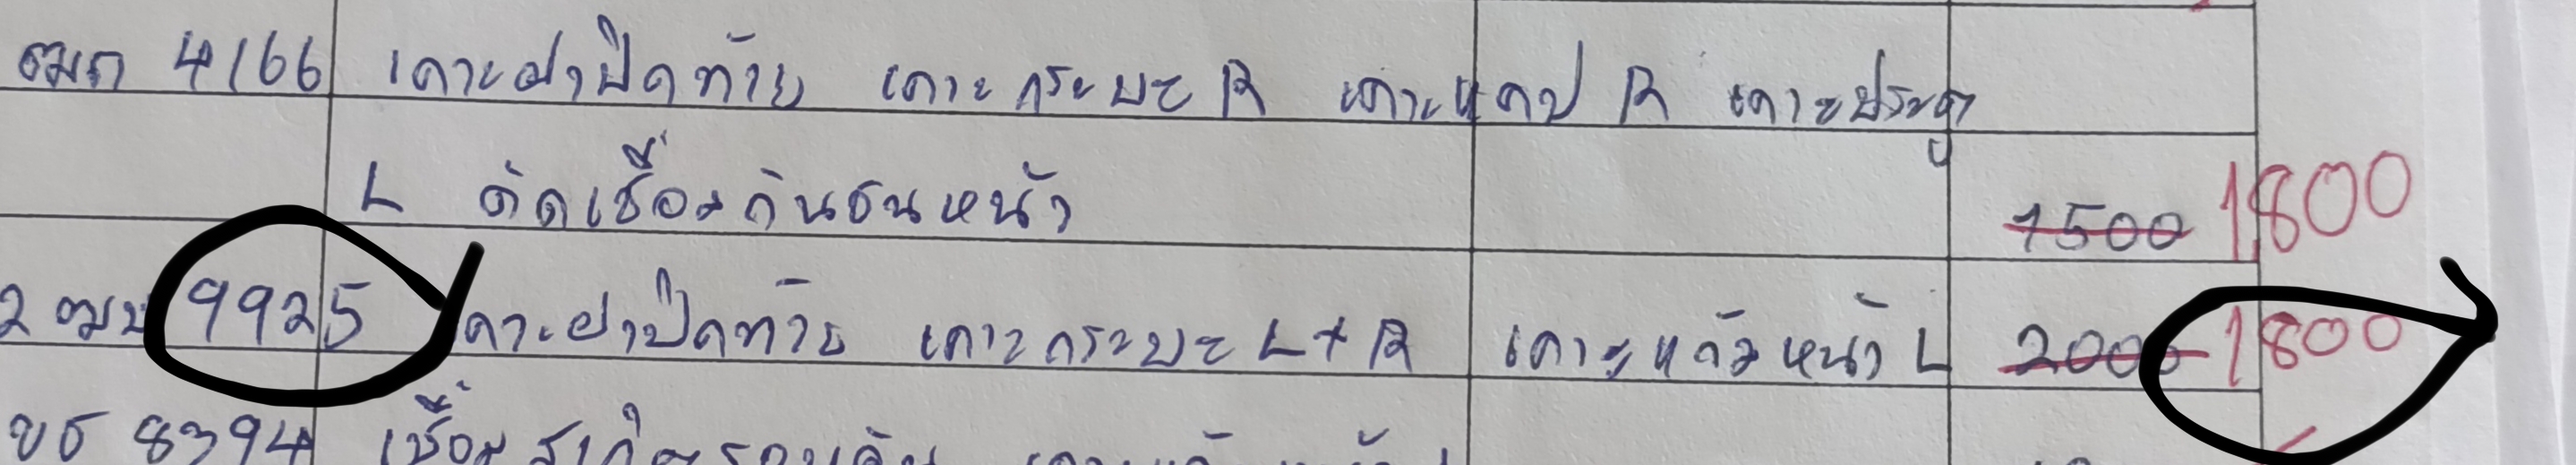 ฒภ 4166 เคาะฝาปิดท้าย เคาะกระบะ R เคาะแคป R เคาะประตู
L ดัดเชื่อมกันชนหน้า 1500 1,800
2ฒษ 9925 เคาะฝาปิดท้าย เคาะกระบะ L+R เคาะแก้มหน้า L 2000 1800
ขธ 8394 เชื่อม